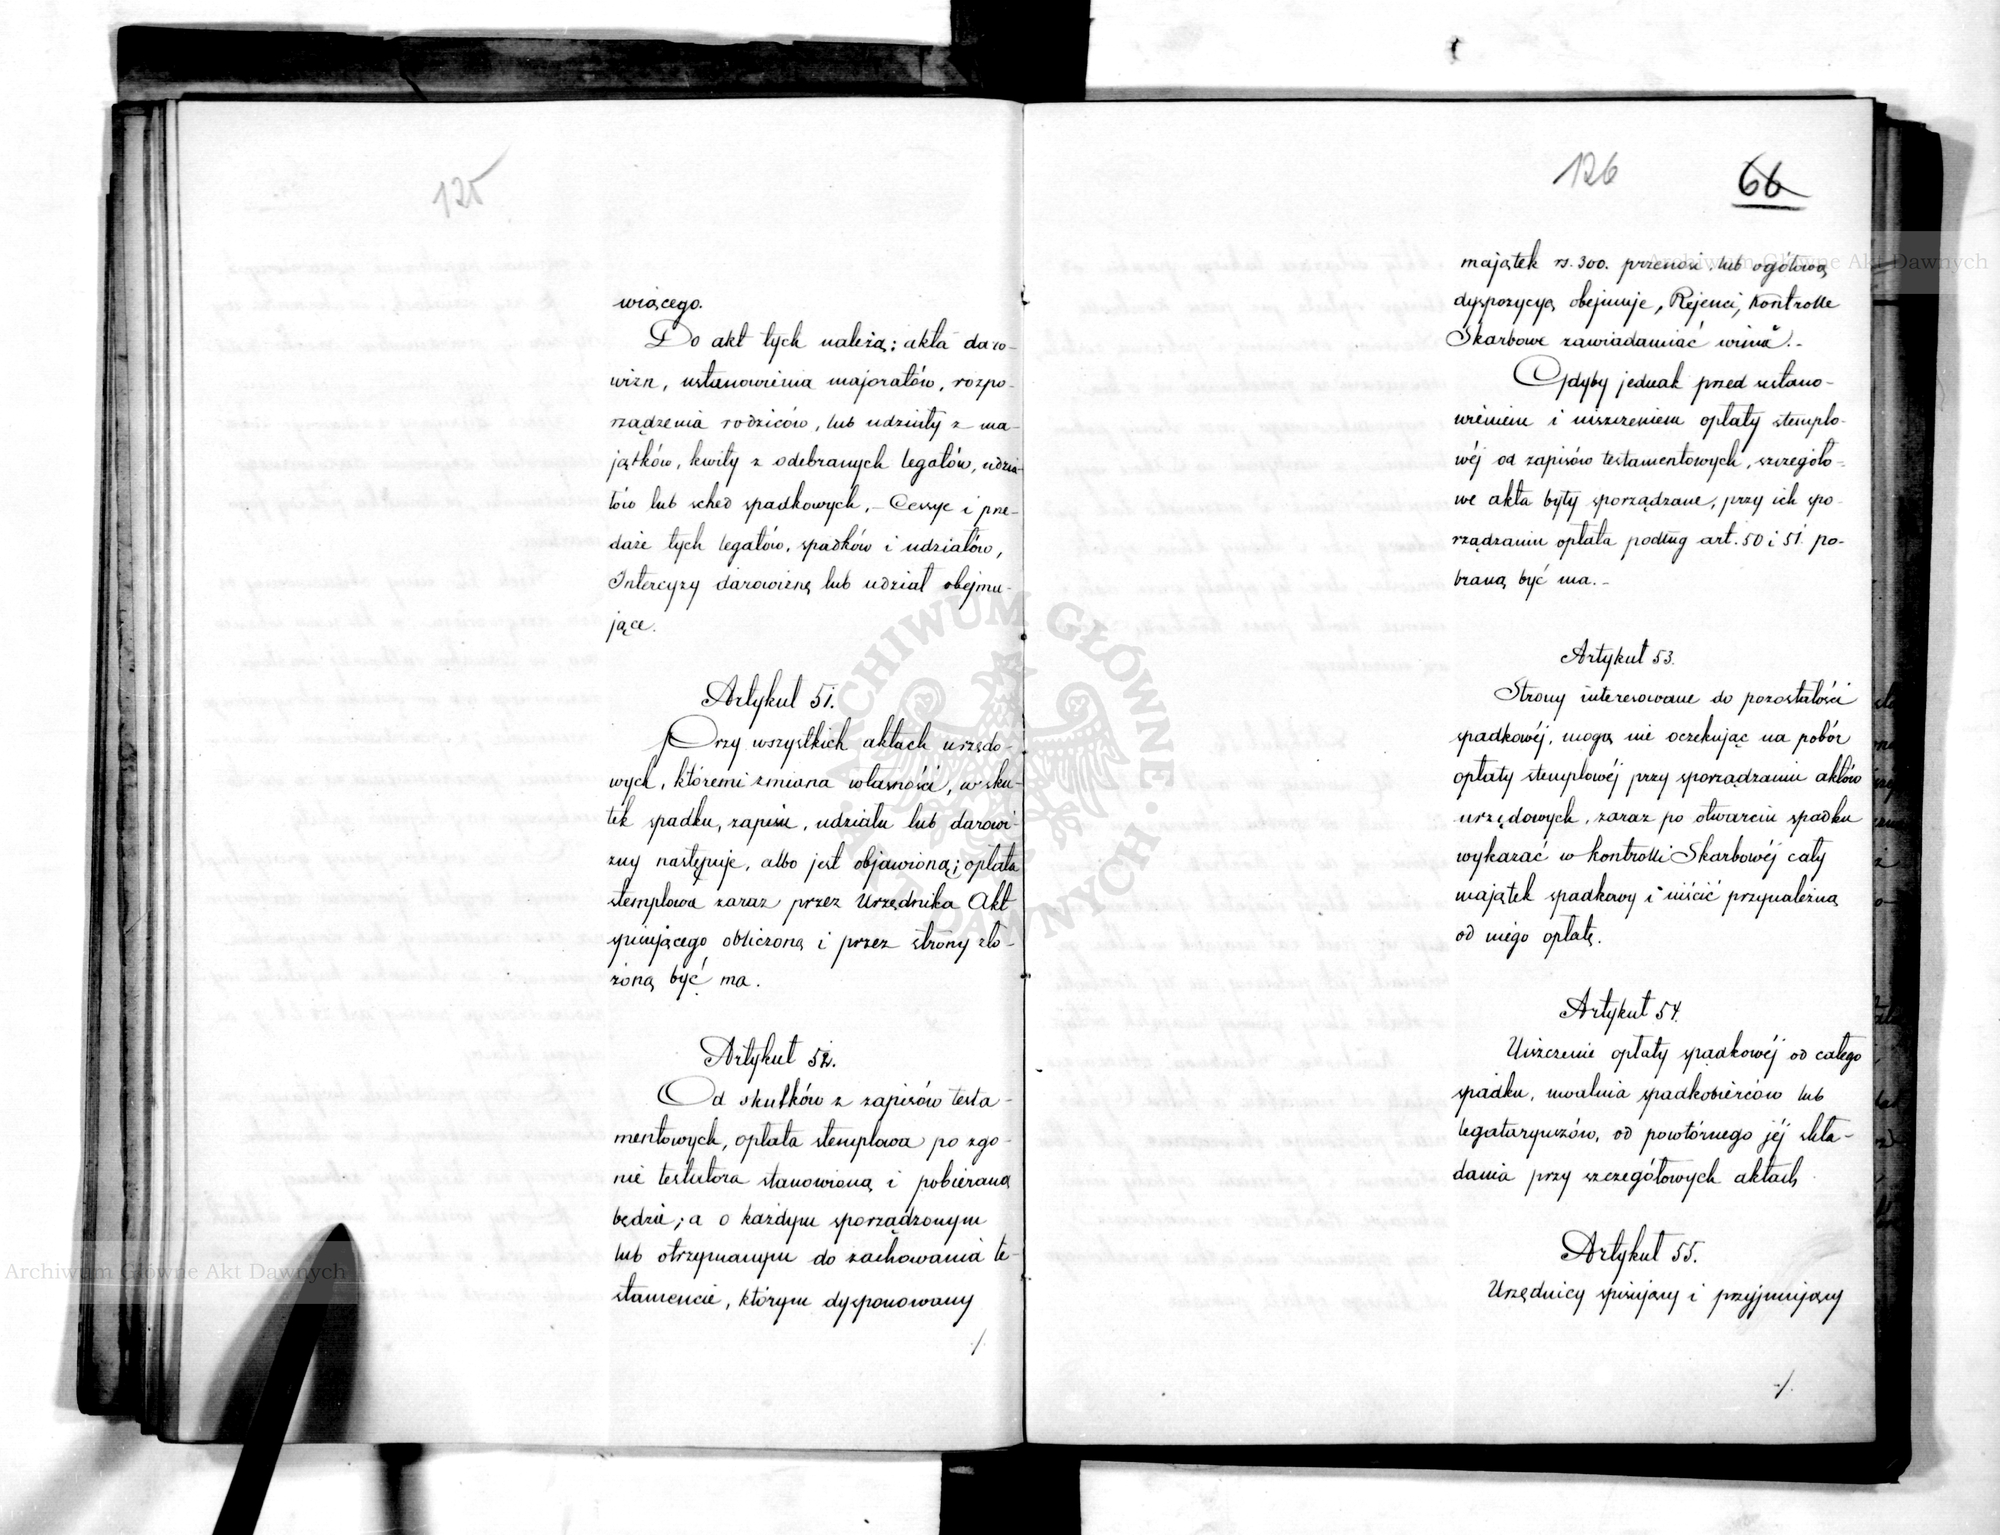 125
wiącego.
Do akt tych należą: akta daro-
wizn, ustanowienia majoratów, rozpo-
rządzenia rodziców, lub udziały z ma-
jątków, kwity z odebranych legatów, udzia-
łów lub sched spadkowych, – Cessye i prze-
daże tych legatów, spadków i udziałów,
Intercyzy darowiznę lub udział obejmu-
jące.
Artykuł 51.
Przy wszystkich aktach urzędo-
wych, któremi zmiana własności, w sku-
tek spadku, zapisu, udziału lub darowi-
zny następuje, albo jest objawioną; opłata
stemplowa zaraz przez Urzędnika Akt
spisującego obliczoną i przez strony zło-
żoną być ma.
Artykuł 52.
Od skutków z zapisów testa-
mentowych, opłata stemplowa po zgo-
nie testatora stanowioną i pobieraną
będzie; a o każdym sporządzonym
lub otrzymanym do zachowania te-
stamencie, którym dysponowany
./.
126
66
majątek rs. 300. przenosi, lub ogólową
dyspozycyą obejmuje, Rejenci, Kontrolle
Skarbowe zawiadamiać winni.-
Gdyby jednak przed ustano-
wieniem i uiszczeniem opłaty stemplo-
wéj od zapisów testamentowych, szczegóło-
we akta były sporządzane, przy ich spo-
rządzaniu opłata podług art. 50 i 51. po-
braną być ma.-
Artykuł 53.
Strony interesowane do pozostałości
spadkowéj, mogą nie oczekując na pobór
opłaty stemplowéj przy sporządzaniu aktów
urzędowych, zaraz po otwarciu spadku
wykazać w Kontrolli Skarbowéj cały
majątek spadkowy i uiścić przynależną
od niego opłatę.
Artykuł 54.
Uiszczenie opłaty spadkowéj od całego
spadku, uwalnia spadkobierców lub
legataryuszów, od powtórnego jéj skła-
dania przy szczegółowych aktach
Artykuł 55.
Urzędnicy spisujący i przyjmujący
./.
Archiwum Główne Akt Dawnych
Archiwum Główne Akt Dawnych
ARCHIWUM GŁÓWNE AKT DAWNYCH